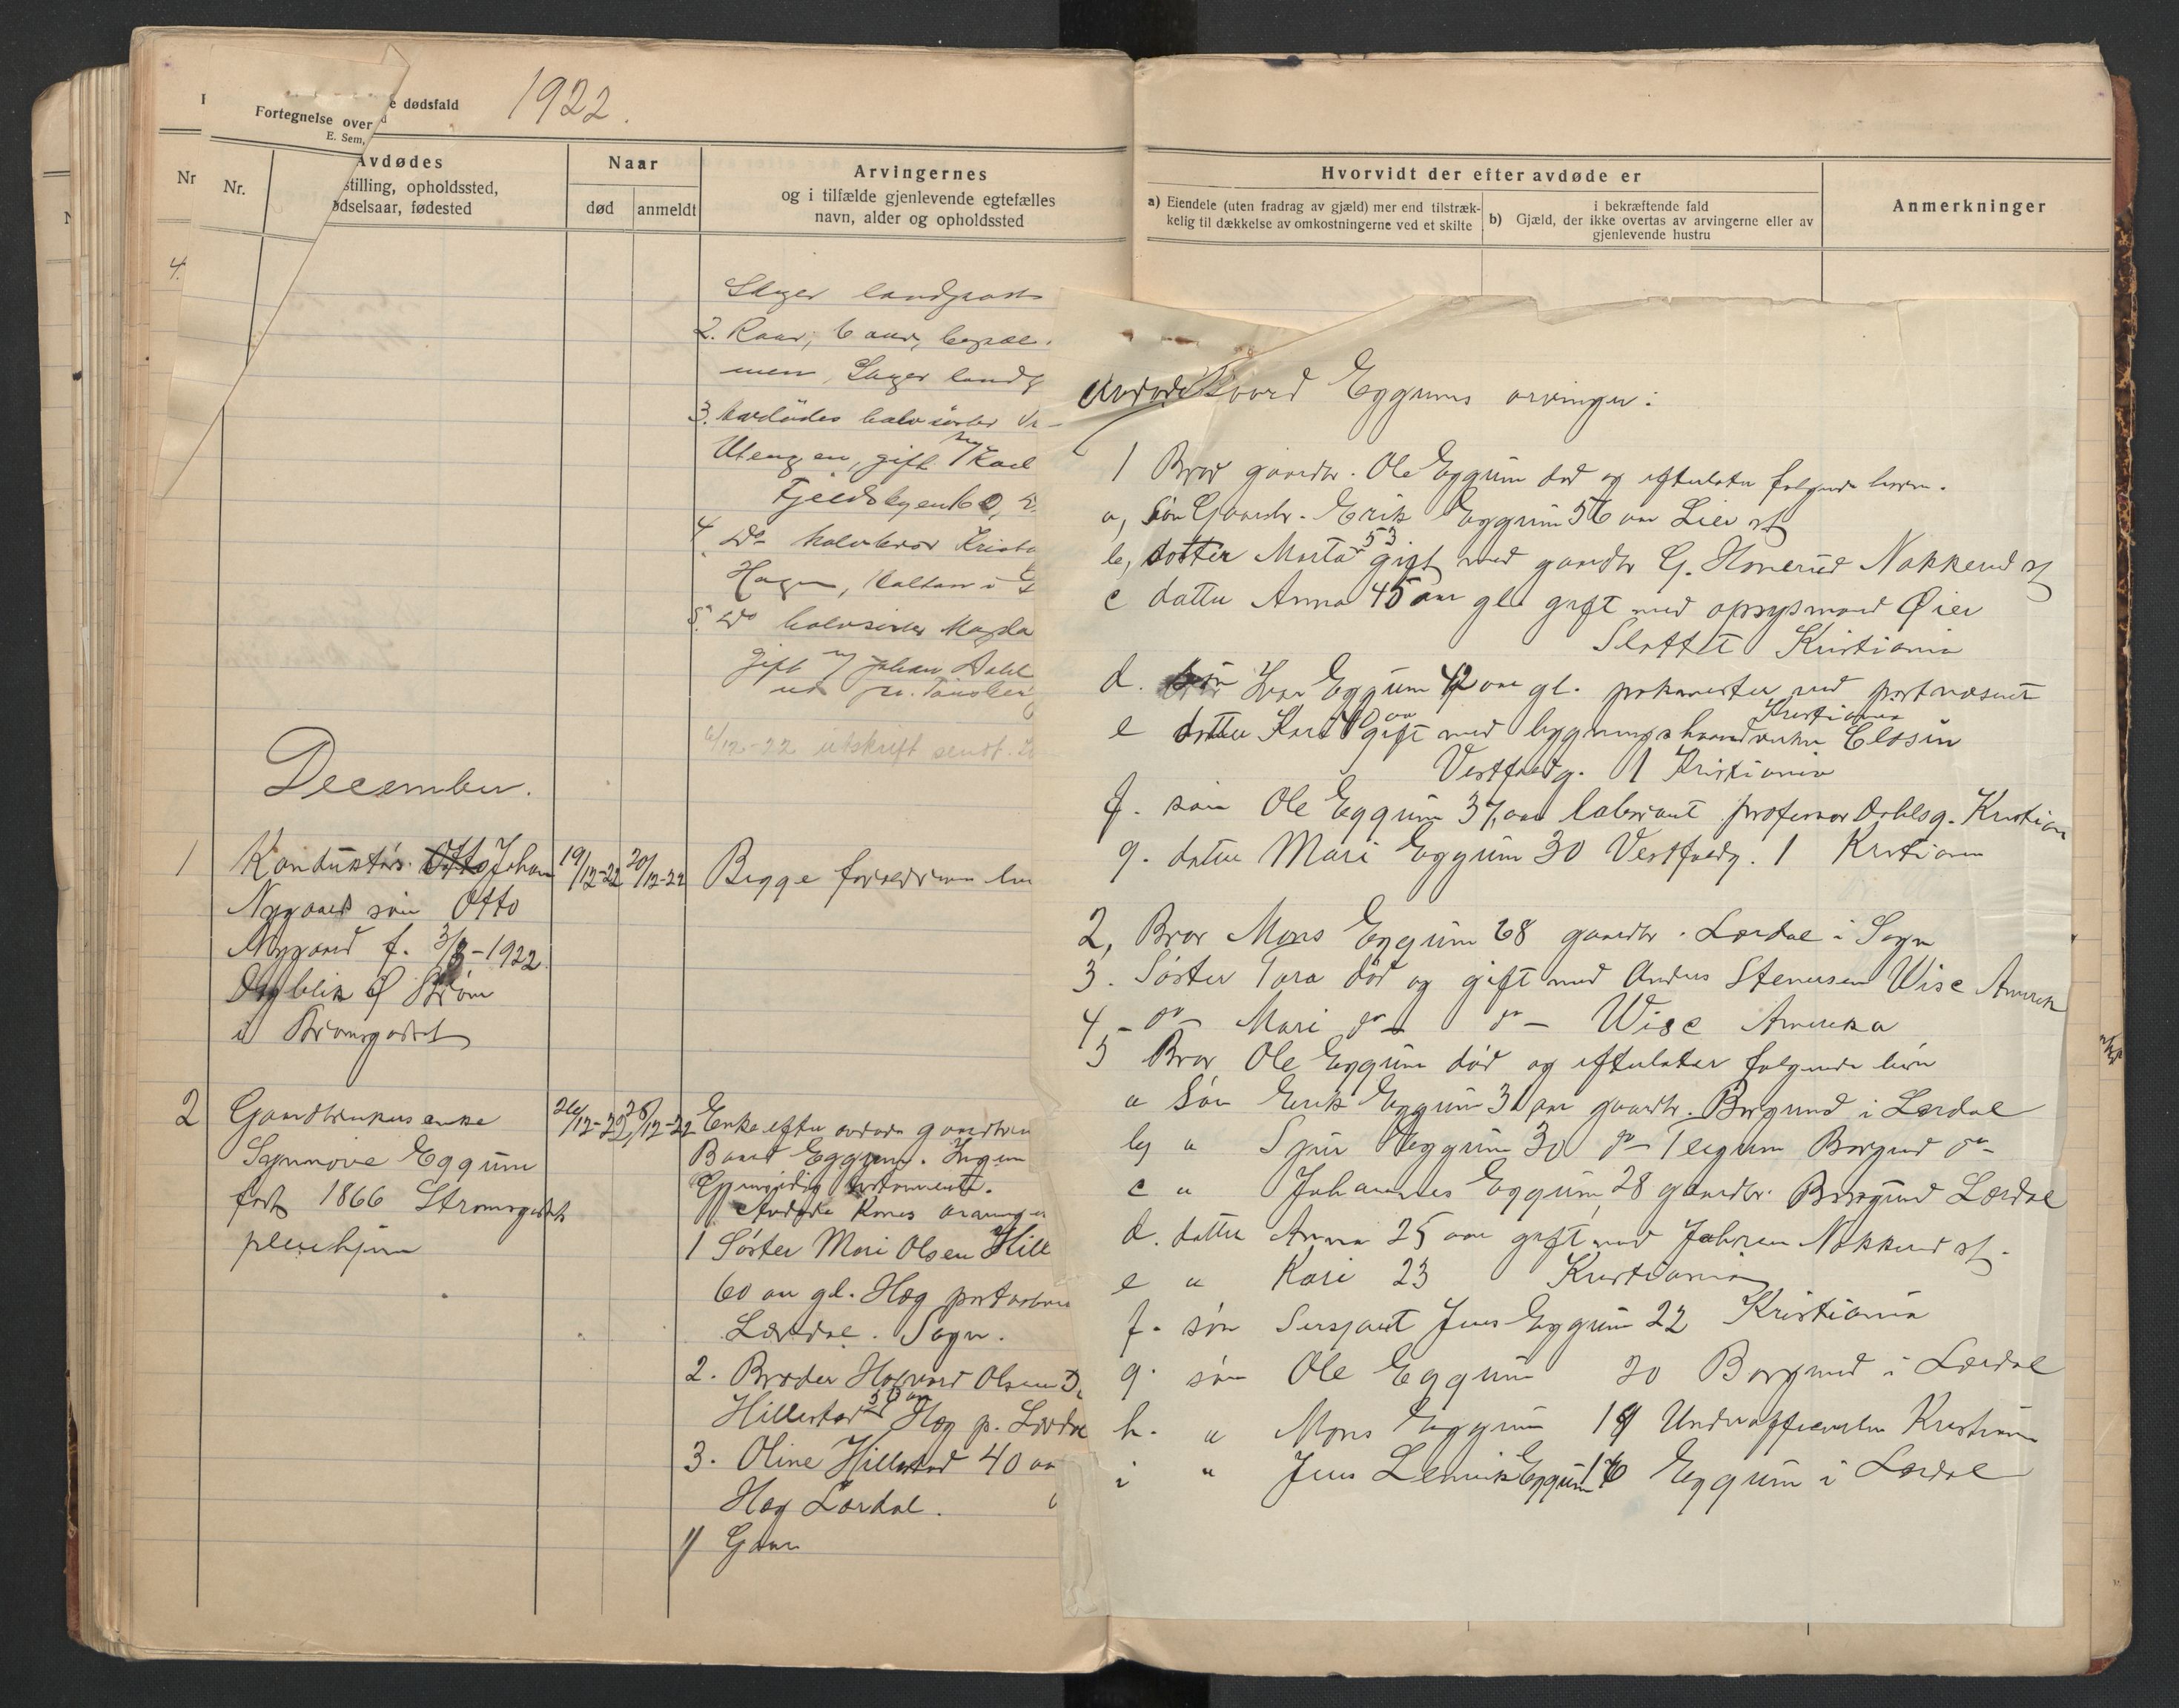 1922.
Fortegnelse over
e dødsfald
E. Sem,
Nr
Nr.
Avdødes
stilling, opholdssted,
ødselsaar, fødested
Naar
død
anmeldt
Arvingernes
og i tilfælde gjenlevende egtefælles
navn, alder og opholdssted
4.
Sager landpost
2. Roar, 6 aar,
men, Sager landp
3. Avdødes halvsøster
Utengen, gift m/ Karl
4 Do halvbror
Hagen,
5. Do halvsøster Magda
gift m/ Johan Dahl
6/12-22 utskrift sendt.
December.
1
Konduktør Otto Johan
Nygaard søn Otto
Nygaard f. 3/8-1922
Ø Strøm
i Strømsgodset
19/12-22
20/12-22
Begge forældrene
2
Gaardbrukerenke
Synnøve Eggum
født 1866 Strømsgodset
pleiehjem
26/12-22
28/12-22
Enke efter avdøde gaardbru
Baard Eggum. Ingen
Gjensidig testamente.
Avdøde Kones arvinger
1 Søster Mari Olsen Hill
60 aar gl. Hæg postaabne
Lærdal. Sogn.
2. Broder Halvard Olsen
Hillestad 50 aar Hæg p. Lærdal
3. Oline Hillestad 40 aa
Hæg Lærdal.
Gaar
Hvorvidt der efter avdøde er
a) Eiendele (uten fradrag av gjæld) mer end tilstræk-
kelig til dækkelse av omkostningerne ved et skifte
i bekræftende fald
b) Gjæld, der ikke overtas av arvingerne eller av
gjenlevende hustru
Anmerkninger
Avdøde Baard Eggums arvinger:
1 Bror gaardbr. Ole Eggum død og efterlater følgende børn.
a, Søn Gaardbr. Erik Eggum 56 aar Lier st
b, dotter Marta 53 gift med gaardbr G. Homerud Nøkkerud st
c datter Anna 45 aar gl. gift med opsynsmand Øier
Slottet Kristiania
d. søn Ivar Eggum 42 aar gl. pakmester ved postvæsenet
Kristiania
e datter Kari 40 aar gift med bygningshaandverker Closin
Vestfoldg. 1 Kristiania
f. søn Ole Eggum 37 aar laborant professor Dahlsg. Kristian
g. datter Mari Eggum 30 Vestfoldg. 1 Kristiania
2, Bror Mons Eggum 68 gaardbr. Lærdal i Sogn
3. Søster Tora død og gift med Anders Stenersen Wisc Amerik
4 - do - Mari do - do - Wisc Amerika
5 Bror Ole Eggum død og efterlater følgende børn
a Søn Erik Eggum 31 aar gaardbr. Borgund i Lærdal
b) " Sjur Eggum 30 do - Teigum Borgund do -
c " Johannes Eggum 28 gaardbr. Borgund Lærdal
d. datter Anna 25 aar gift med Johnsen Nøkkerud st.
e " Kari 23 Kristiania
f. søn Sersjant Jens Eggum 22 Kristiania
g. søn Ole Eggum 20 Borgund i Lærdal
h. " Mons Eggum 19 Underofficerskn Kristiania
i " Jens Lemik Eggum 16 Eggum i Lærdal